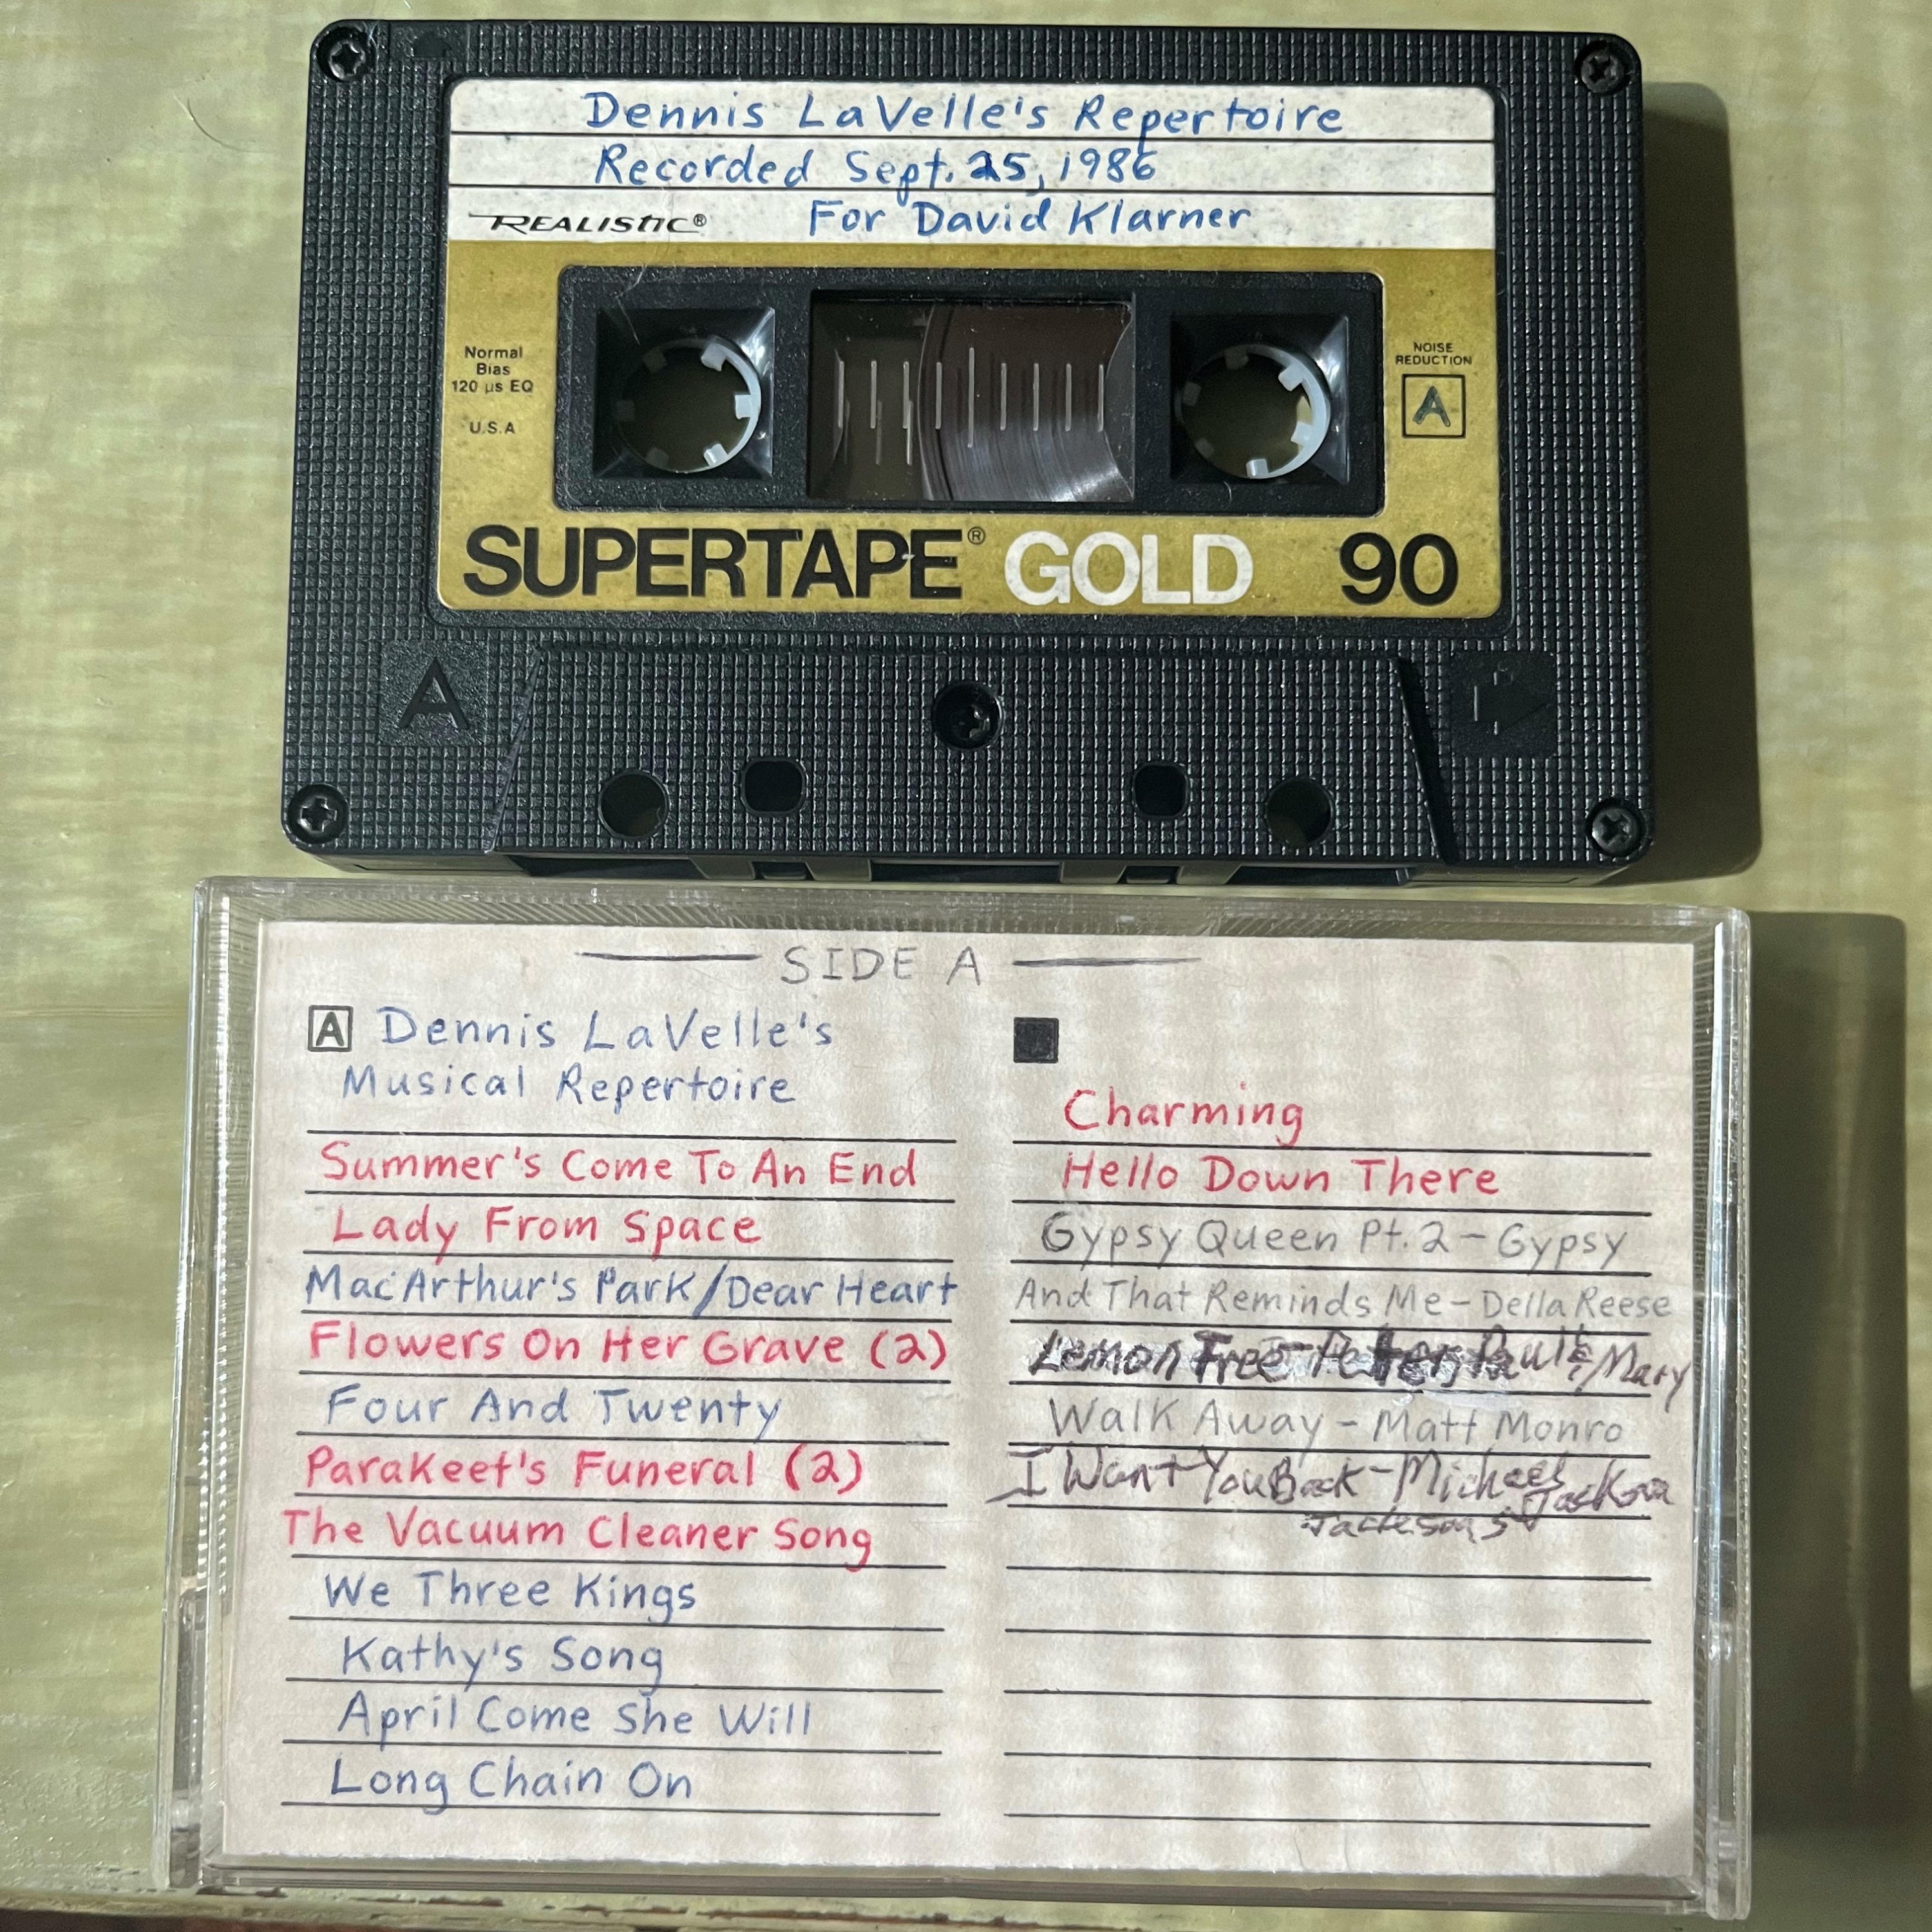 Dennis LaVelle's Repertoire
Recorded Sept. 25, 1986
REALISTIC® For David Klarner
Normal
Bias
120 µs EQ
U.S.A
NOISE
REDUCTION
A
SUPERTAPE® GOLD 90
A
SIDE A
A Dennis LaVelle's
Musical Repertoire
Summer's Come To An End
Lady From Space
MacArthur's Park/Dear Heart
Flowers On Her Grave (2)
Four And Twenty
Parakeet's Funeral (2)
The Vacuum Cleaner Song
We Three Kings
Kathy's Song
April Come She Will
Long Chain On
Charming
Hello Down There
Gypsy Queen Pt. 2 - Gypsy
And That Reminds Me - Della Reese
Lemon Tree - Peter, Paul & Mary
Walk Away - Matt Monro
I Want You Back - Michael Jackson
Jackson 5